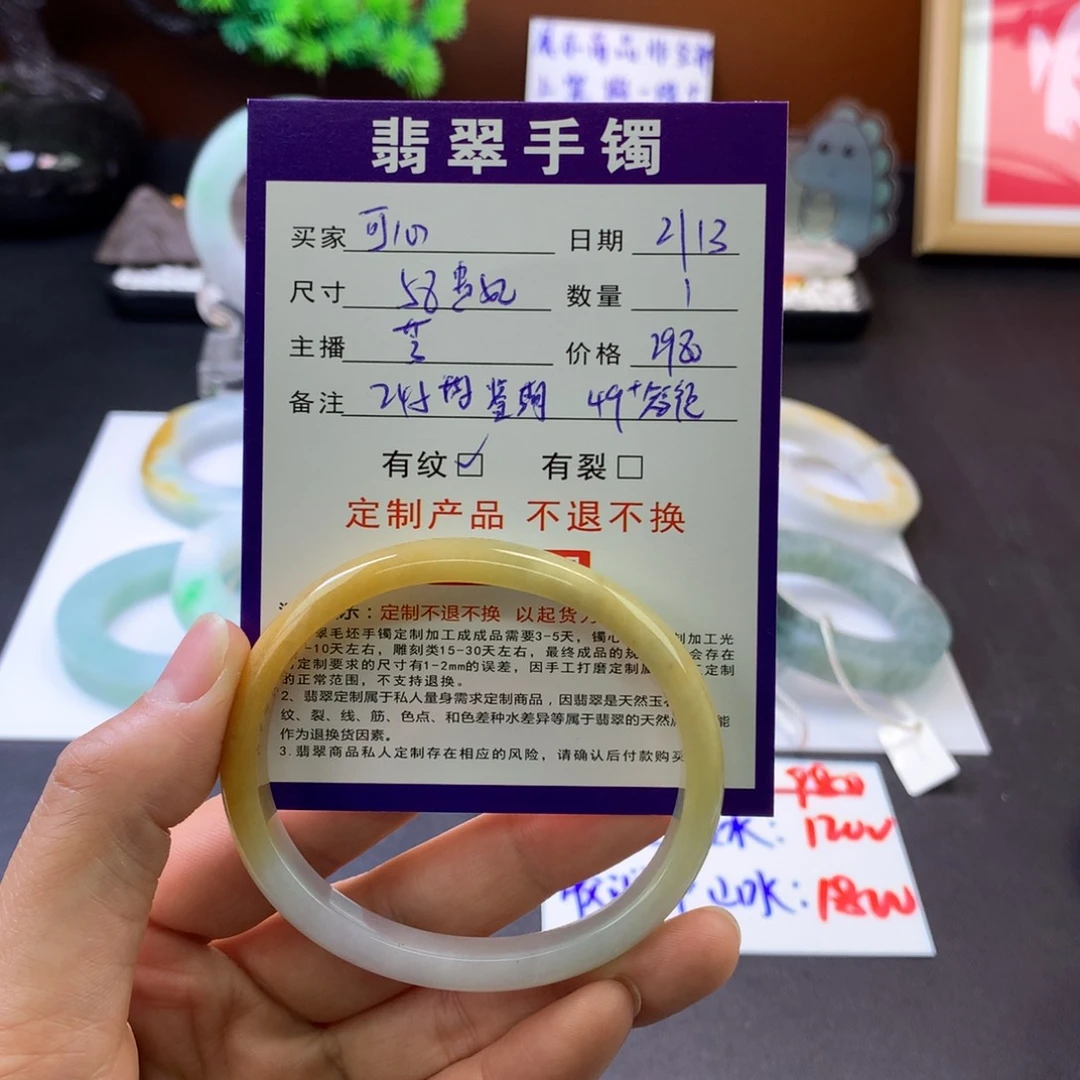 翡翠手镯
买家 可心 日期 2/13
尺寸 58贵妃 数量 1
主播 芝 价格 2980
备注
有纹☑ 有裂□
定制产品 不退不换
示：定制不退不换 以起货
翠毛坯手镯定制加工成成品需要3-5天，镯心 加工光
-10天左右，雕刻类15-30天左右，最终成品的规 会存在
定制要求的尺寸有1-2mm的误差，因手工打磨定制 定制
的正常范围，不支持退换。
2、翡翠定制属于私人量身需求定制商品，因翡翠是天然玉 能
纹、裂、线、筋、色点、和色差种水差异等属于翡翠的天然
作为退换货因素。
3.翡翠商品私人定制存在相应的风险，请确认后付款购买
水：1200
山水：1800